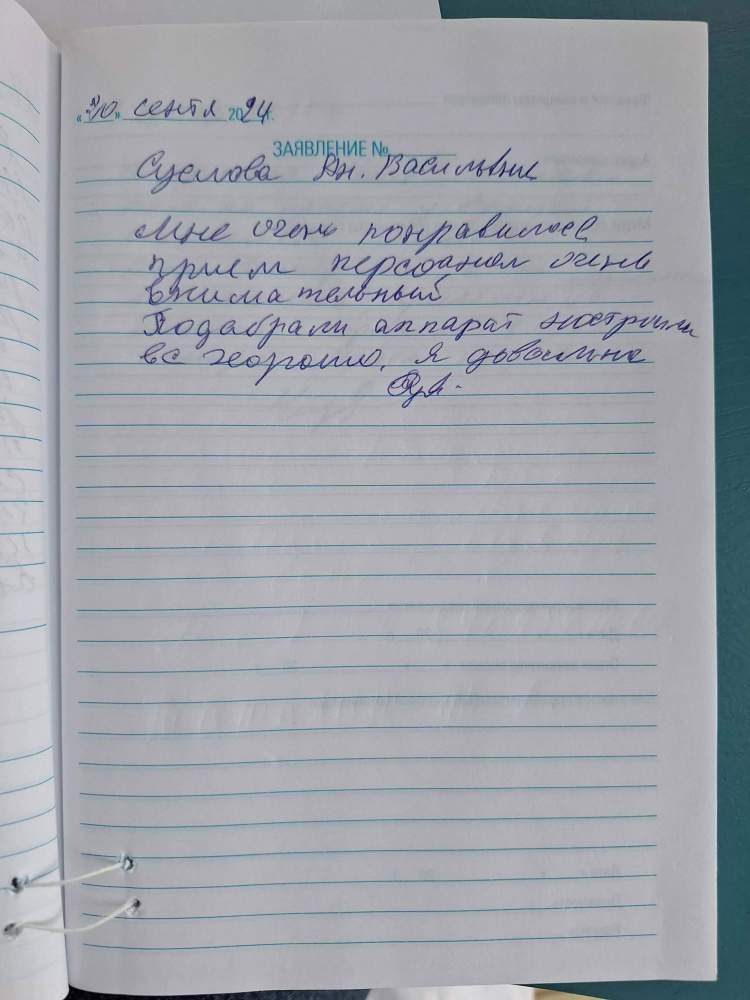 «20» сентя 2024г.
ЗАЯВЛЕНИЕ №
Суслова Ан. Васильвне
Мне очень понравилось
прием персоанал очень
внимательный
Подобрали аппарат настроили
вс хорошо. Я довольна